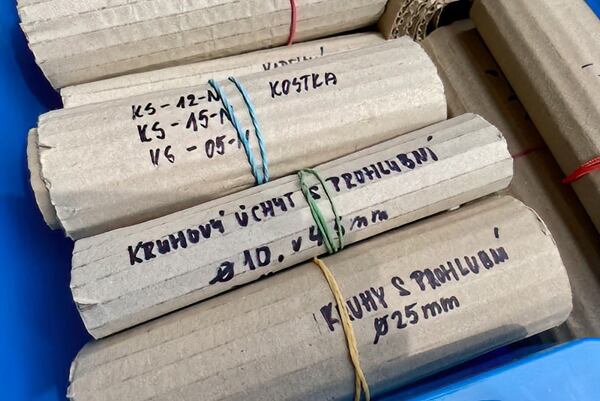 KS-12-N
KS-15-N
KOSTKA
KRUHOVÝ ÚCHYT S PROHLUBNÍ
Ø 10. v mm
KRUHY S PROHLUBNÍ
Ø 25 mm